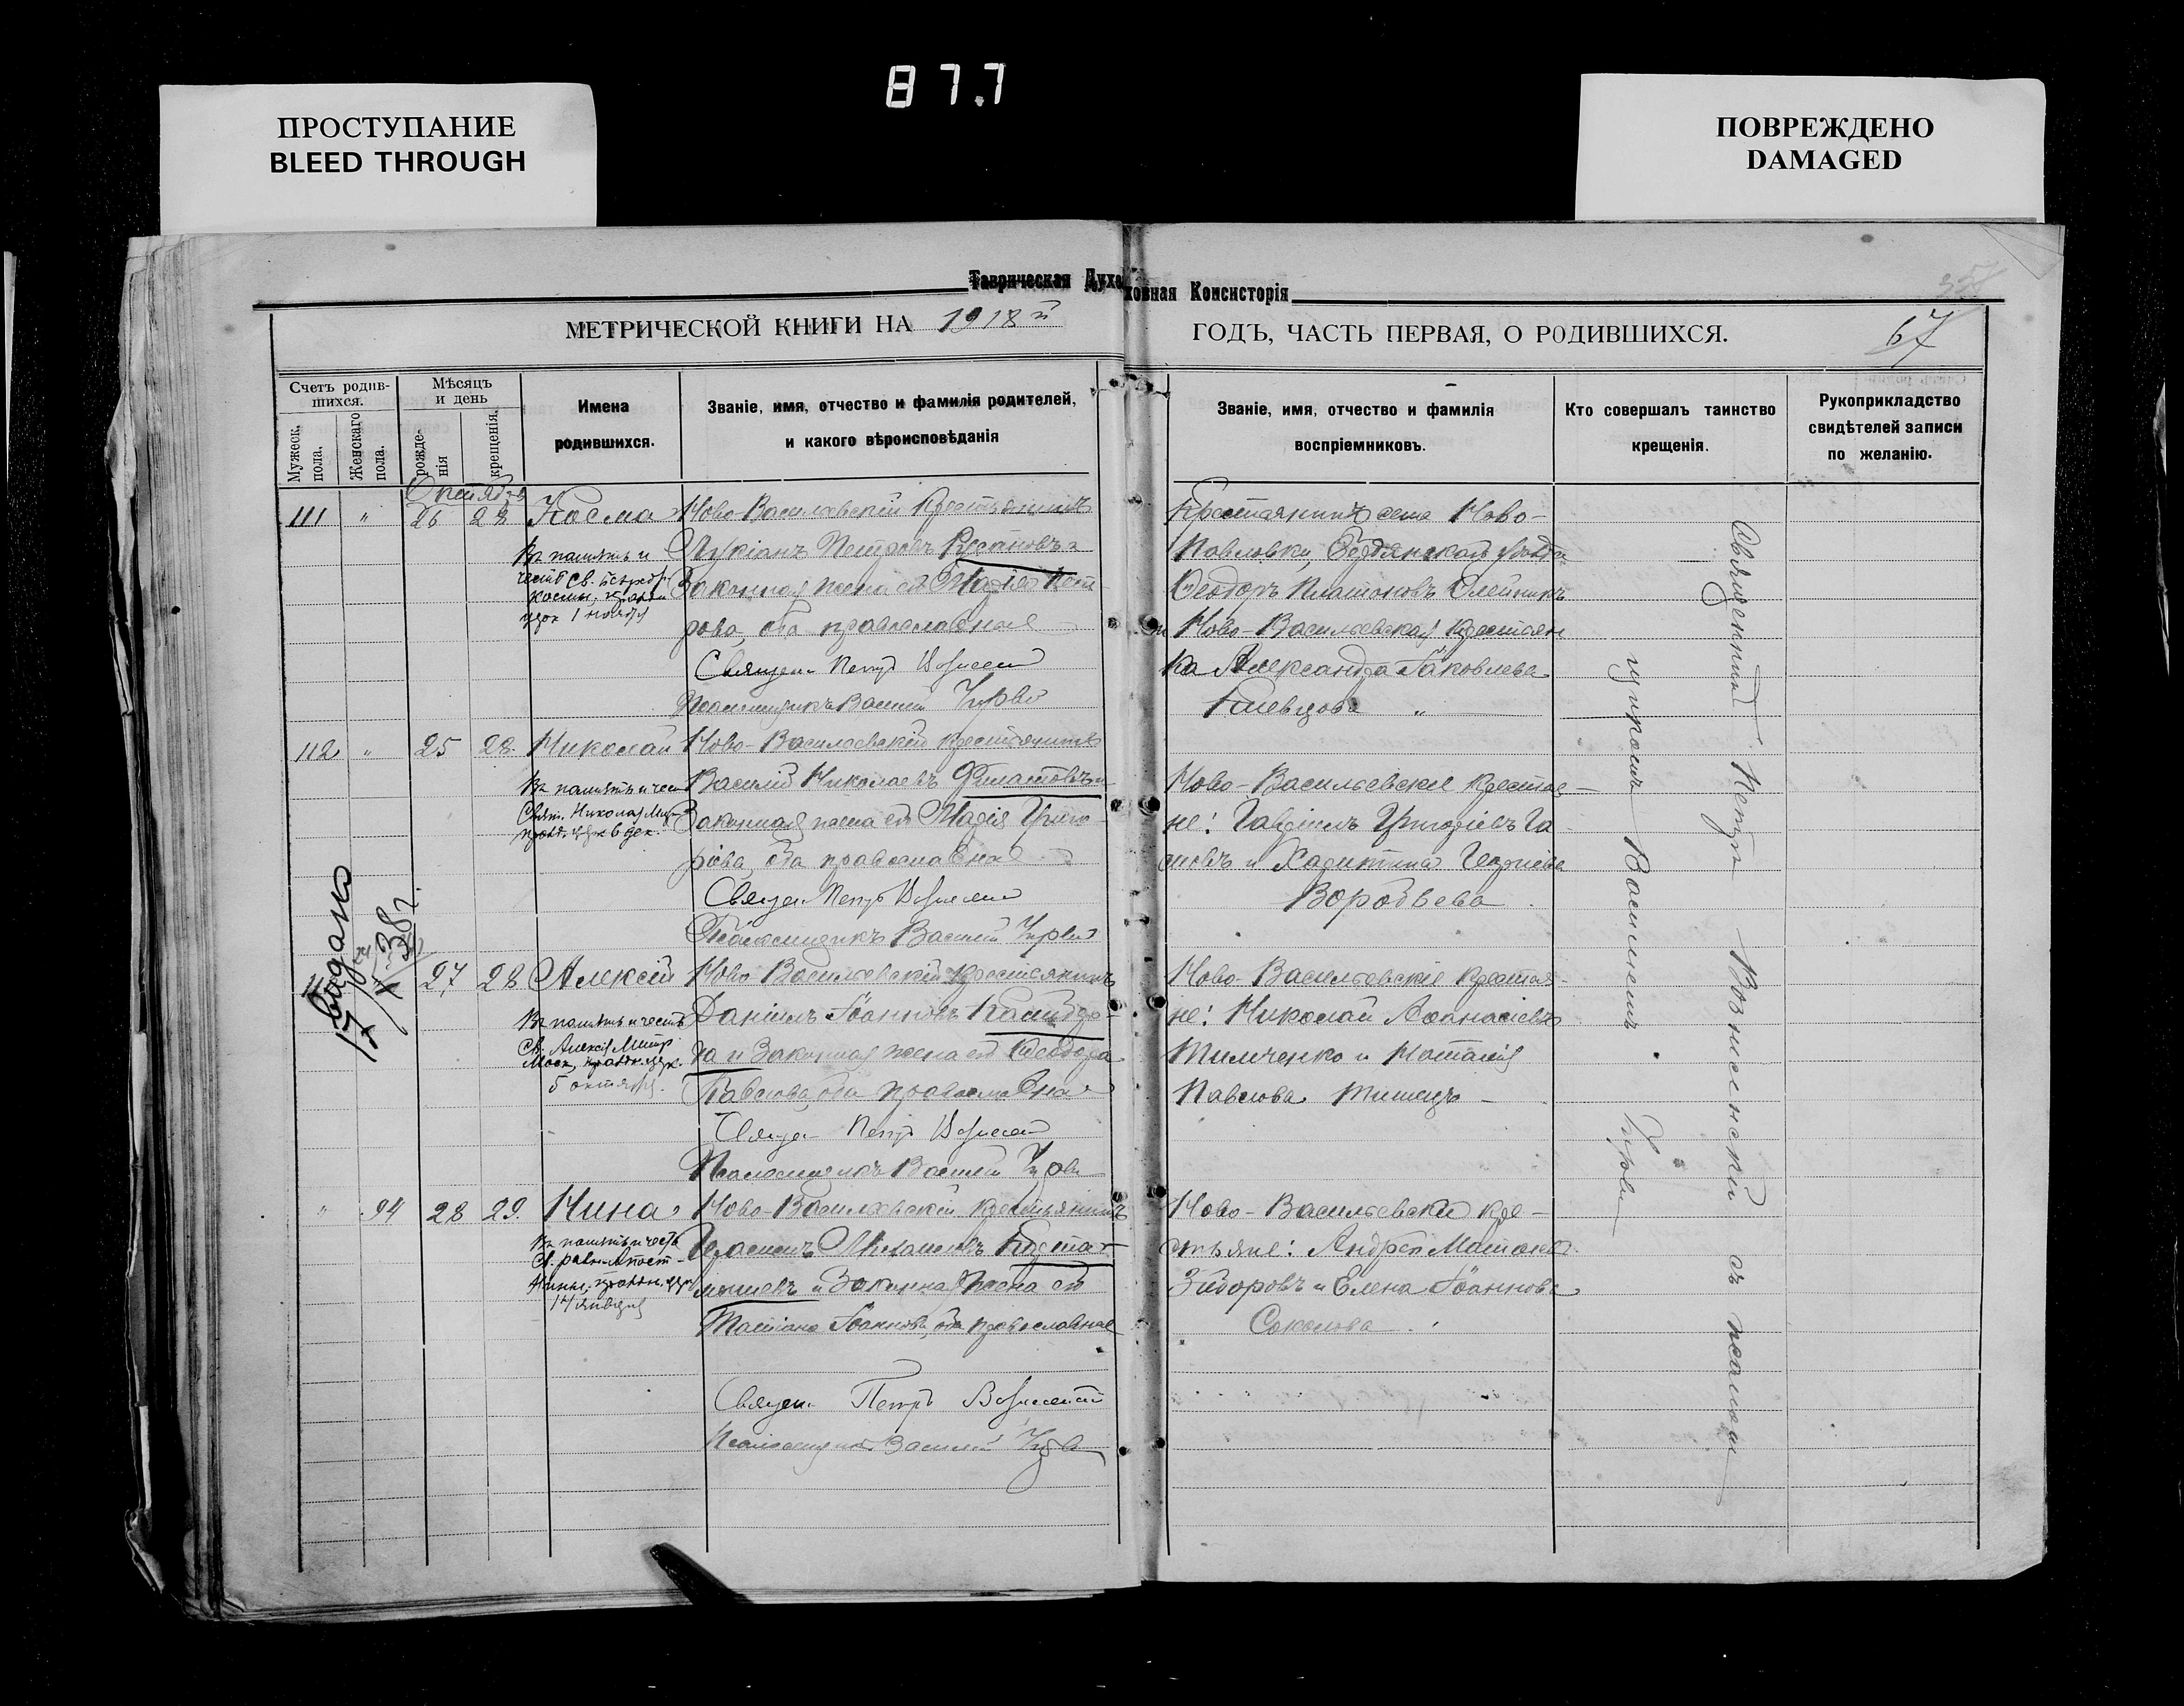 87.7
ПРОСТУПАНИЕ
BLEED THROUGH
ПОВРЕЖДЕНО
DAMAGED
Таврическая Духовная Консисторія
МЕТРИЧЕСКОЙ КНИГИ НА 1918й ГОДЪ, ЧАСТЬ ПЕРВАЯ, О РОДИВШИХСЯ.
67
Счетъ родив-
шихся.
Мужеск. пола.
Женскаго пола.
Мѣсяцъ
и день
рожде-
нія
крещенія.
Имена
родившихся.
Званіе, имя, отчество и фамилія родителей,
и какого вѣроисповѣданія
Званіе, имя, отчество и фамилія
воспріемниковъ.
Кто совершалъ таинство
крещенія.
Рукоприкладство
свидѣтелей записи
по желанію.
Октября
111 " 26 28 Косма
Въ память и
честь Св.
Космы,
1 ноября
Ново-Васильевскій крестьянинъ
Лукіанъ Петровъ Русановъ и
Законная жена его Марія Пет
рова, оба православные
Священ. Петръ Вознесен
Псаломщикъ Василій
Крестьянинъ села Ново-
Павловки, Бердянскаго уѣзда
Ѳеодоръ Платоновъ Олейникъ
и Ново-Васильевская крестьян
ка Александра Іаковлева
112 " 25 28. Николай
Въ память и чест
Свят. Николая Мир
празд. церк 6 дек.
Ново-Васильевскій крестьянинъ
Василій Николаевъ Филатовъ и
Законная жена его Марія Григо
ріева, оба православные
Священ. Петръ Вознесен
Псаломщикъ Василій
Ново-Васильевскіе крестья-
не: Гавріилъ Григоріевъ Га
и Харитина
Воробьева
выдано
27 28 Алексій
Въ память и честь
Св. Алексія Митр
Моск, празд. церк.
5 октября.
Ново-Васильевскій крестьянинъ
Даніилъ Іоанновъ
и Законная жена его Ѳеодора
Павлова, оба православные
Священ. Петръ Вознесен
Псаломщикъ Василій
Ново-Васильевскіе крестья-
не: Николай Аѳанасіевъ
Тимченко и Наталія
Павлова
" 94 28 29. Нина
Въ память и честь
Св. равноапост-
Нины, праздн. церк
14 января
Ново-Васильевскій крестьянинъ
Герасимъ Михаиловъ
и Законная жена его
Татіана Іоаннова, оба православные
Священ. Петръ Вознесенскій
Псаломщикъ Василій
Ново-Васильевскіе кре-
стьяне: Андрей
и Елена Іоаннова
Соколова
Священникъ Петръ Вознесенскій съ псалом
щикомъ Василіемъ